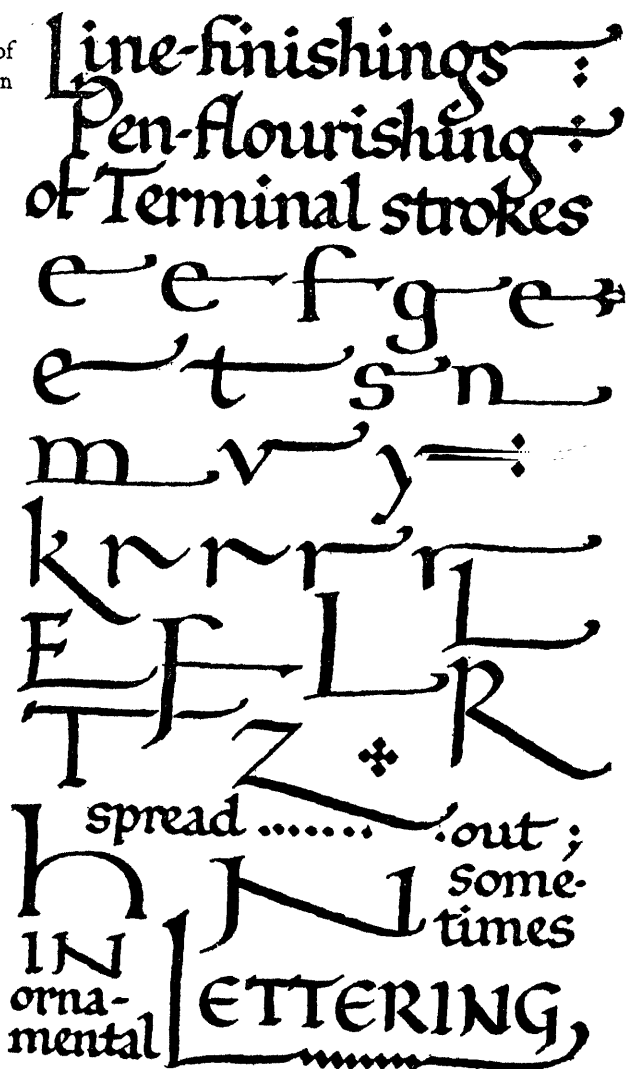 of
n
Line-finishings
Pen-flourishing
of Terminal strokes
e e f g e
e t s n
m v y
k r r r r
E F L L
T Z R
spread ....... out ;
h N some-
times
IN
orna-
mental
LETTERING,